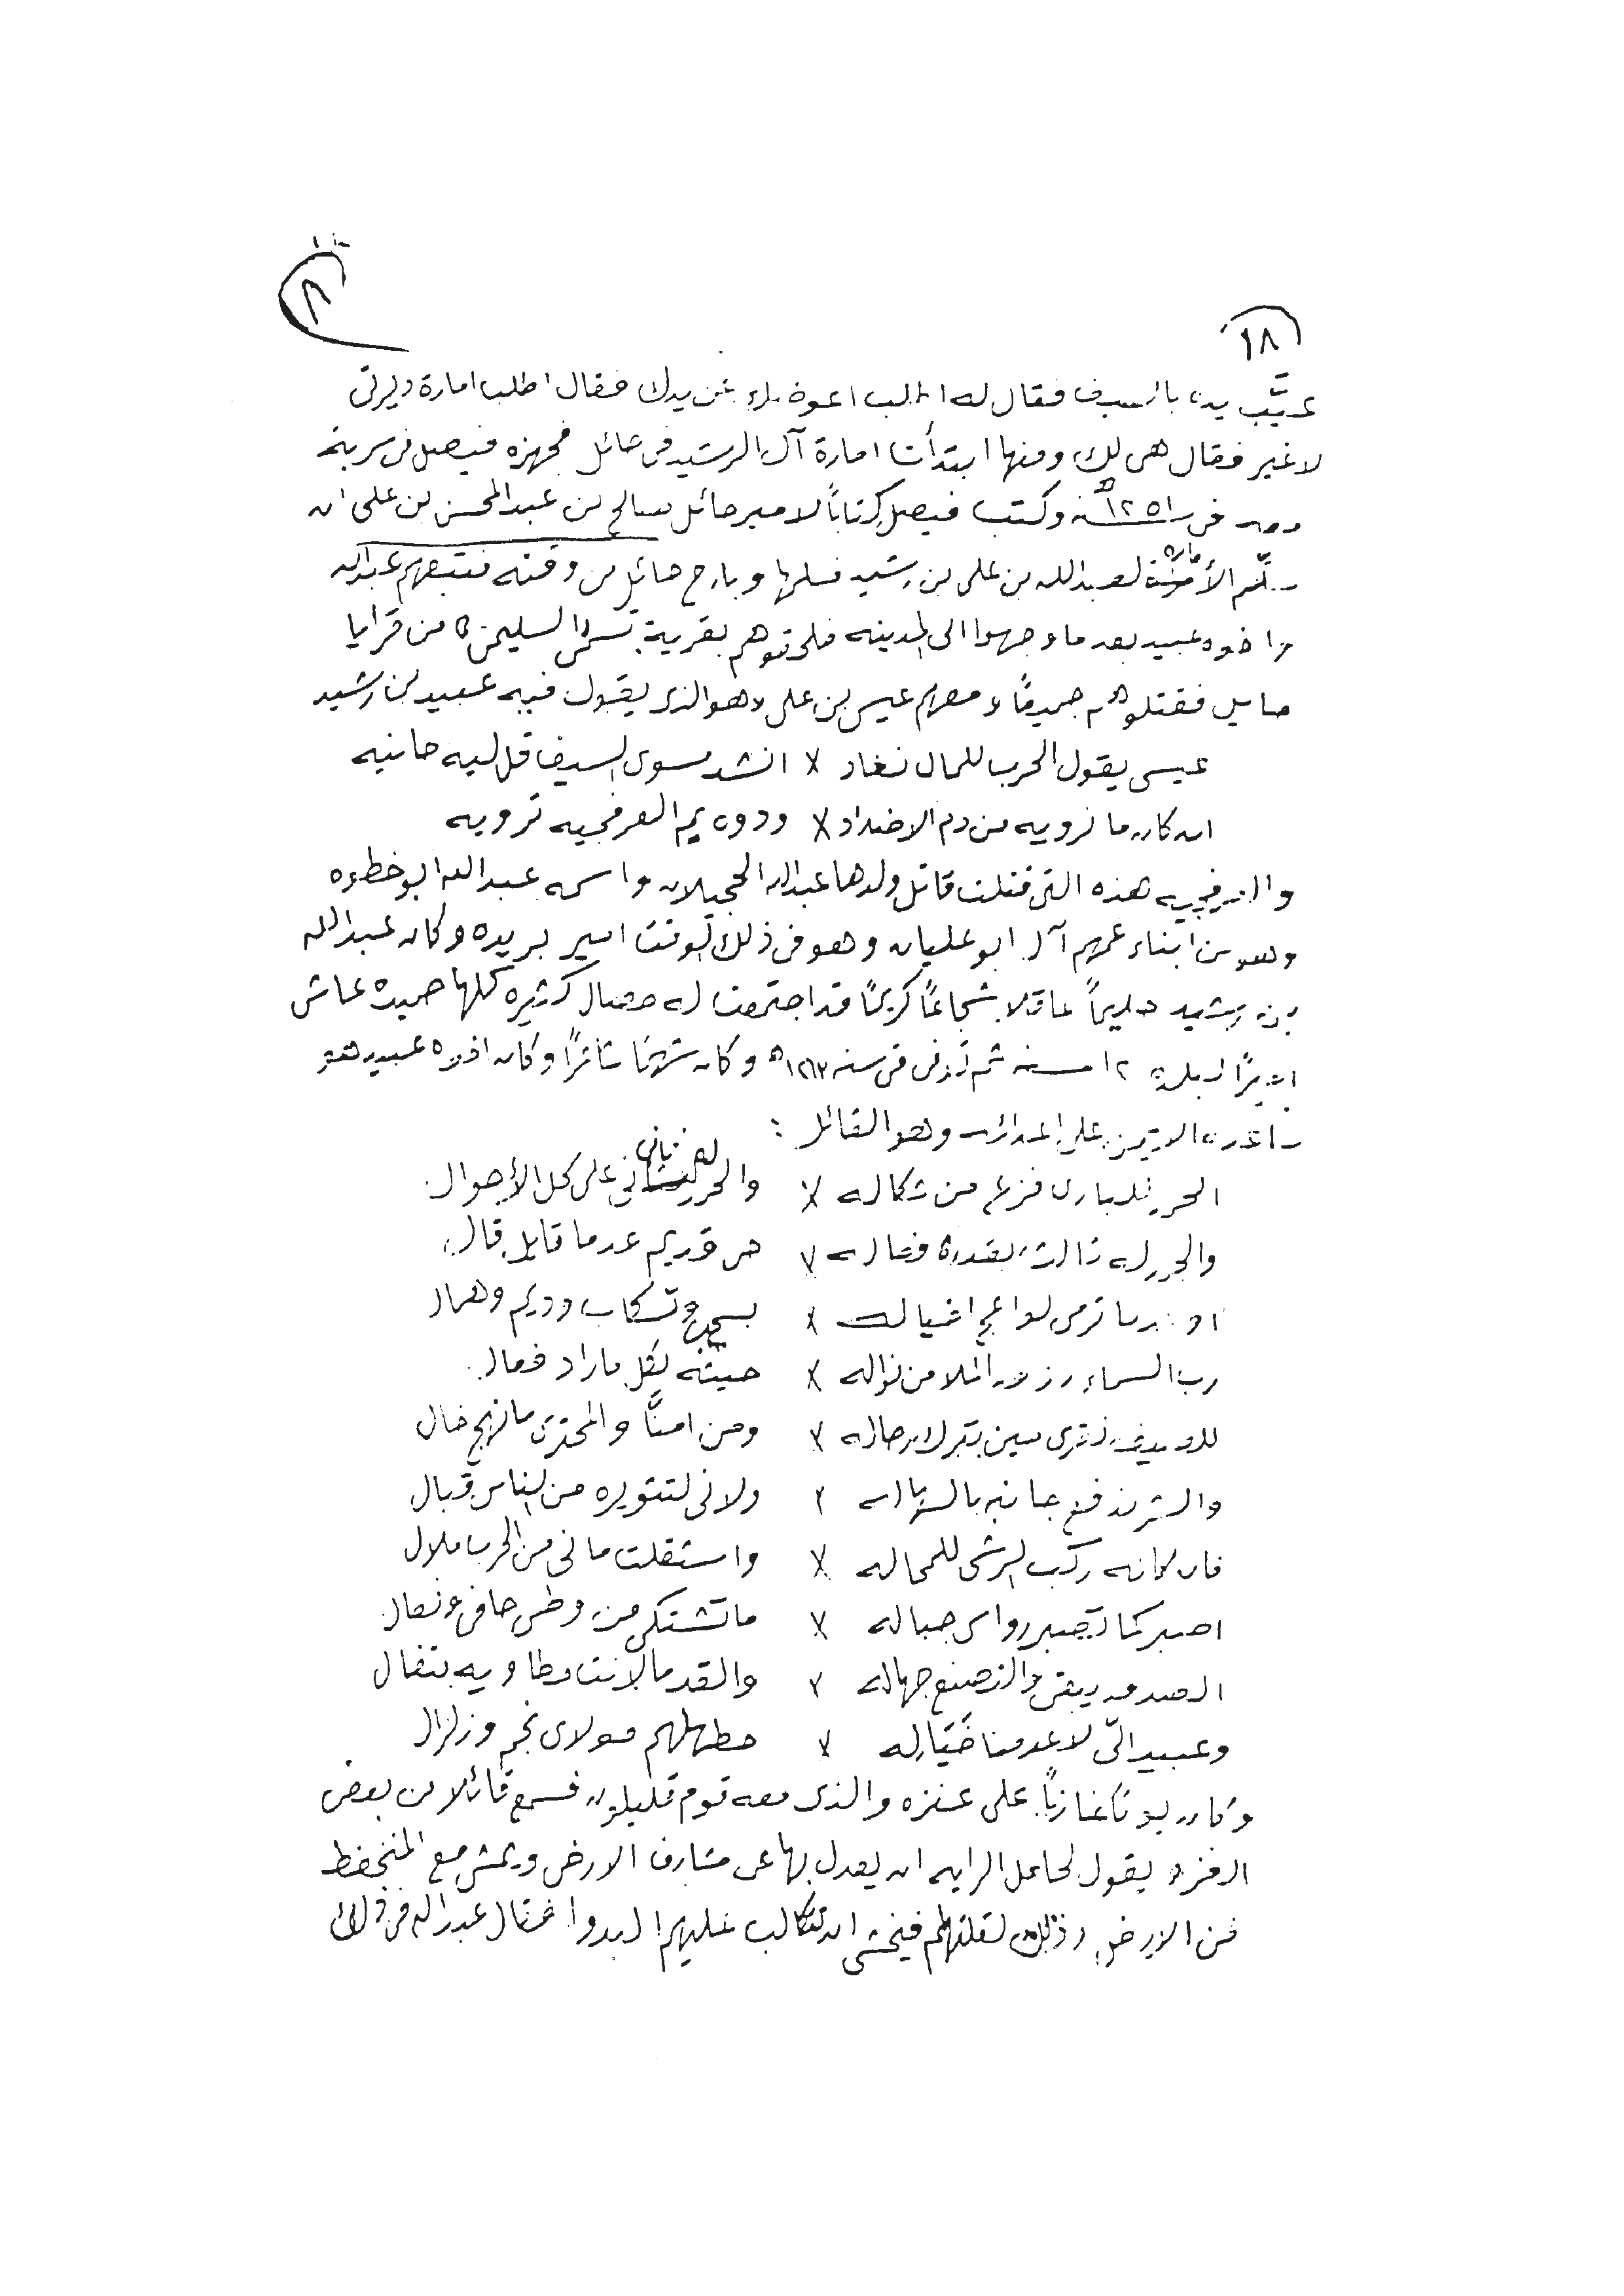 ١٨
٨
عيّب يده بالسيف فقال له اطلب اعوضك عن يدك فقال اطلب امارة ديرتي
لا غير فقال هي لك ومنها ابتدأت امارة آل الرشيد في حائل فجهزه فيصل في سرية
في ١٢٥١ سنة وكتب فيصل كتاباً لامير حائل صالح بن عبد المحسن بن علي ان
سلّم الأمارة لعبد الله بن علي بن رشيد فسلمها وبارح حائل من وقته فتبعهم عبدالله
واخوه عبيد بعد ما وجهوا الى المدينه فلحقوهم بقرية تسمى السليمي من قرايا
حايل فقتلوهم جميعًا ومعهم عيسى بن علي وهو الذي يقول فيه عبيد بن رشيد
عيسى يقول الحرب للمال نفاد × انشد مسوي السيف قل ليه حانيه
ان كان ما نرويه من دم الاضداد × ودوه يم العرفجيه ترويه
والعرفجيه هذه التي قتلت قاتل ولدها عبدالله الحجيلان واسمه عبد الله
وهو من ابناء عمهم آل ابو عليان وهو في ذلك الوقت امير بريده وكان عبد الله
بن رشيد حليماً عاقلا شجاعًا كريمًا قد اجتمعت له خصال كثيره كلها حميده عاش
اميرًا ١٢ سنه ثم توفى في سنه ١٢٦٣ه وكان شهمًا ثائرًا وكان اخوه عبيد هو
ساعده الايمن على وهو القائل :
الحر فزع من نكاله × والحر على كل الأحوال
والحر له فعاله × هو قديم عد ما قايل قال
ما ترمي لواعج اخياله × وتسكاب وديم وهمال
رب السماء الملا من نواله × حيثه لكل ما راد فعال
× ومن امنًا والمحتري ما نهج خال
والشر ندفع جانبه بالسهاله × ولاني لتثويره من الناس قبال
فان كانه ركب الرشى للمحاله × واستقلت ماني من الحرب ملال
اصبر كما تصبر رواسي جباله × ما تشتكي من وطى حافي ونعال
الصدق يبقى والتصنع جهاله × والقد ما لانت مطاويه بتفال
وعبيد اليّ لا عدمنا خَيَاله × حطهلهم مولاي نجم وزلزال
وكان يومًا غازيًا على عنزه والذي معه قوم قليلون فسمع قائلا من بعض
الغزو يقول لحامل الرايه ان يعدل بها عن مشارف الارض ويمشي مع المنخفظ
من الارض وذلك لقلتهم فيخشى ان تتكالب عليهم البدو فقال عبدالله في ذلك